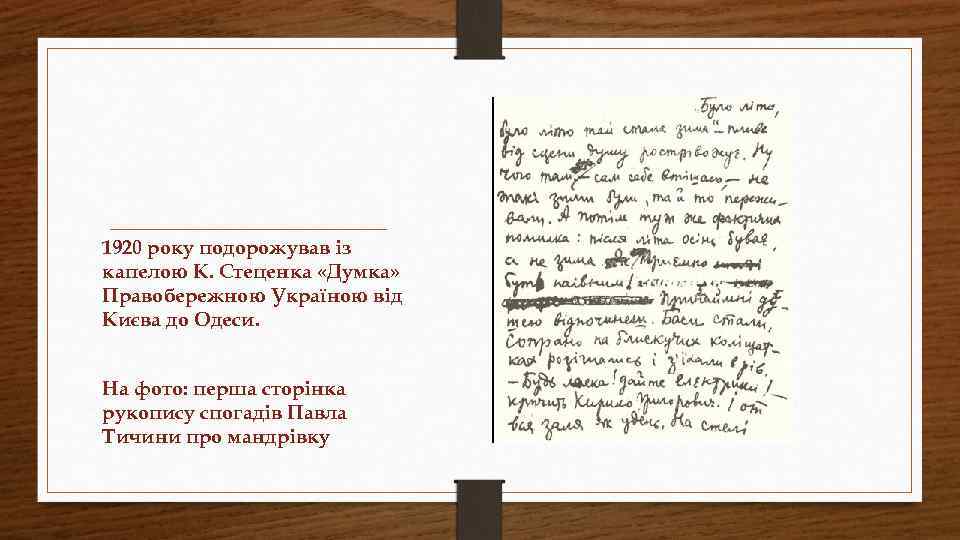 1920 року подорожував із
капелою К. Стеценка «Думка»
Правобережною Україною від
Києва до Одеси.
На фото: перша сторінка
рукопису спогадів Павла
Тичини про мандрівку
„Було літо,
було літо тай стала зима“ – пливе
від сцени, душу розтрівожує. Ну
чого там, – сам себе втішаю, – не
такі зими були, та й то пережи-
вали. А потім тут же фактична
помилка: після літа осінь буває,
а не зима. Приємно
буть наівним!
Принаймні ду-
шею відпочинеш. Баси стали,
Сопрано на блискучих коліщат-
ках розігнались і з'їхали в рів.
– Будь ласка! дайте електрики!
кричить Кирило Григорович. І от
вся заля як удень. На стелі